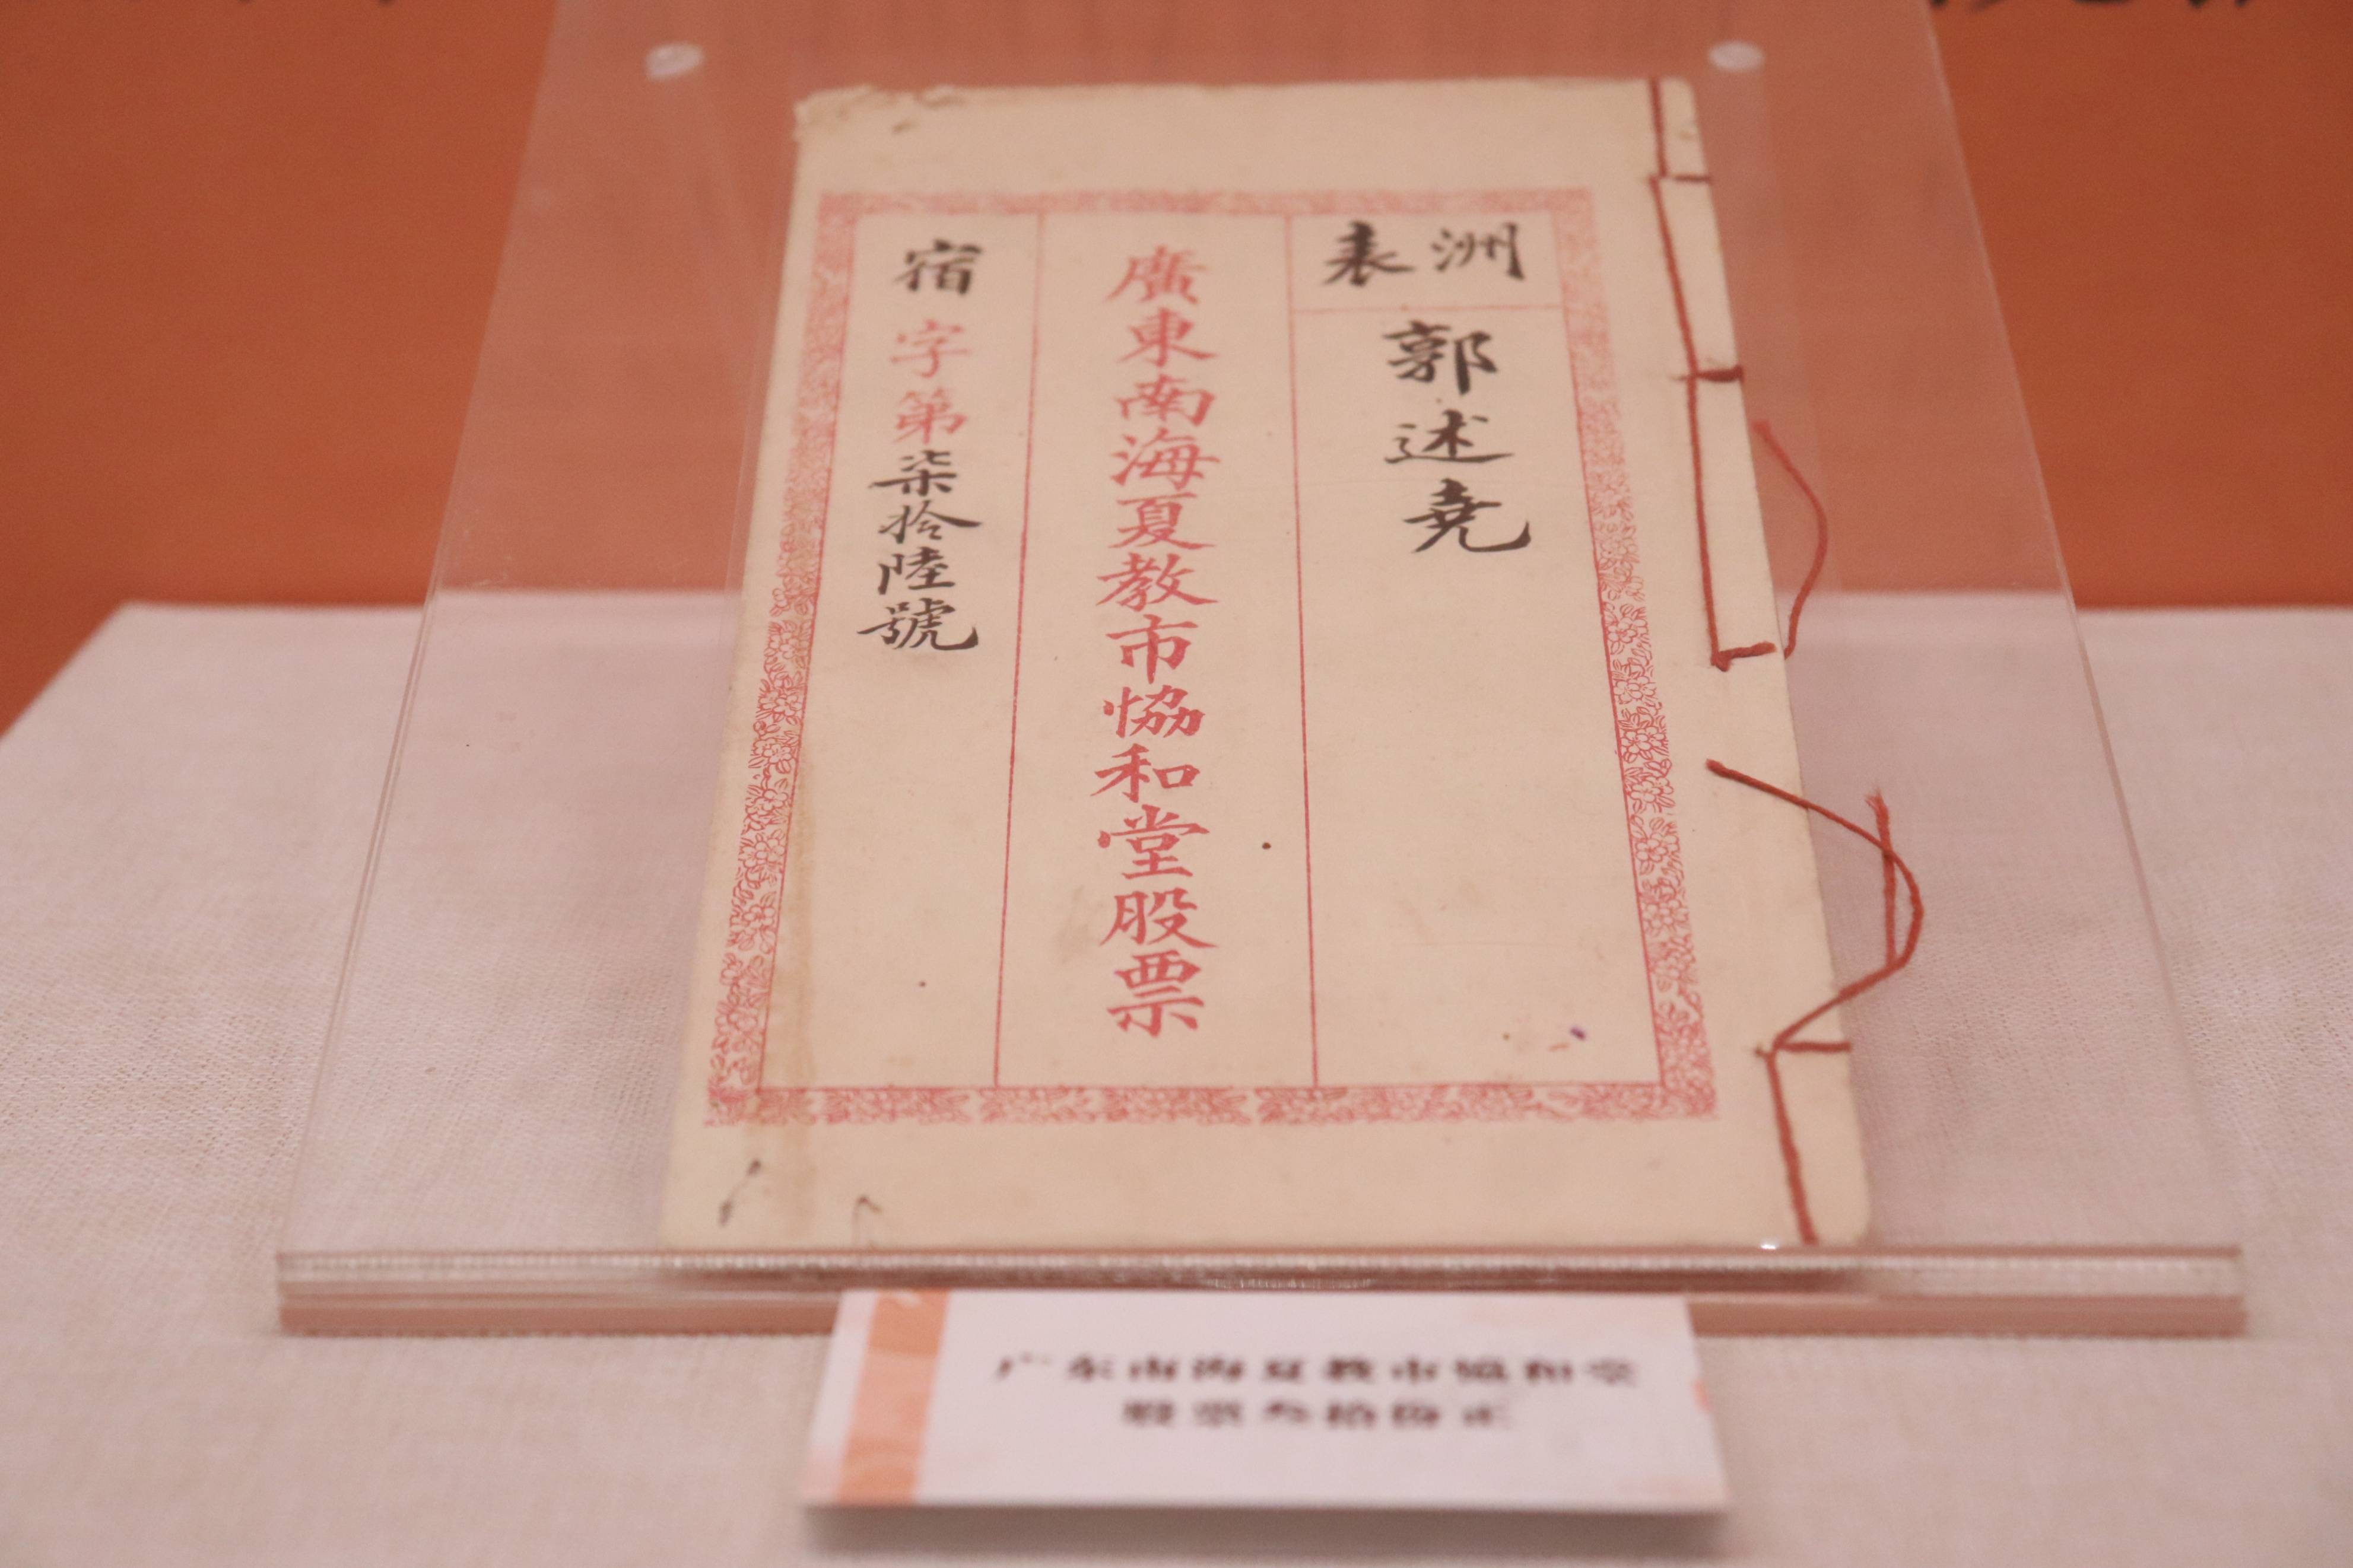 洲表
郭述尭
廣東南海夏教市恊和堂股票
宿字第柒拾陸號
广东南海夏教市協和堂
股票叁拾份正